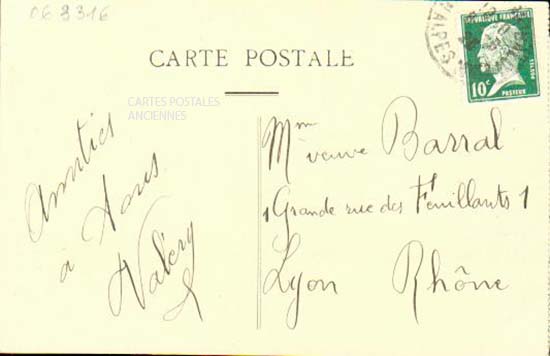 069316
CARTE POSTALE
NAIRES
REPUBLIQUE FRANÇAISE
POSTES
10c
PASTEUR
CARTES POSTALES
ANCIENNES
Amitiés
à tous
Valéry
Mme veuve Barral
1 Grande rue des Feuillants 1
Lyon Rhône